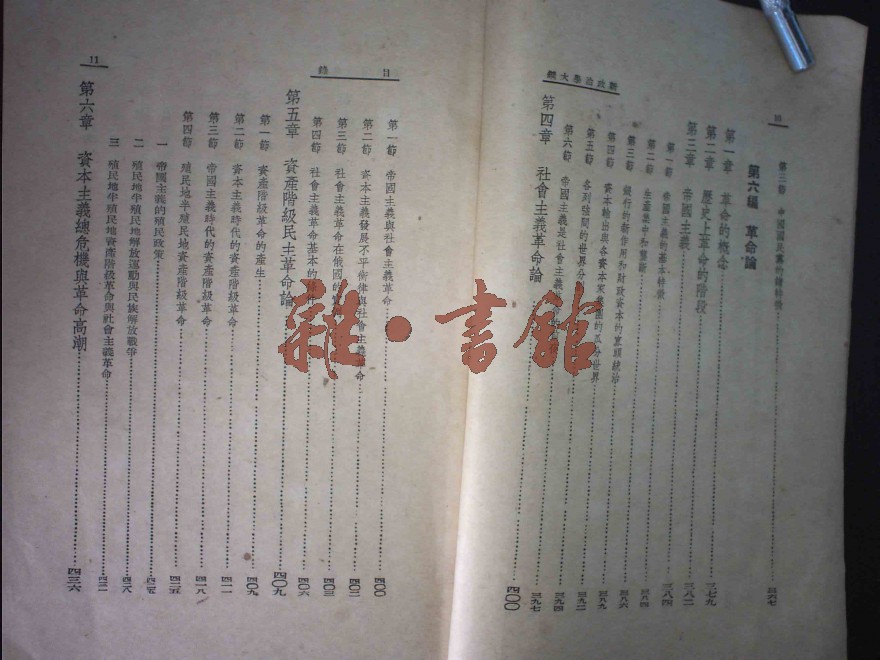 新政治學大綱
第三節 中國國民黨的
三六七
第六編 革命論
第一章 革命的概念
三七九
第二章 歷史上革命的階段
三八二
第三章 帝國主義
三八四
第一節 帝國主義的基本特徵
三八四
第二節 生產集中和壟斷
第三節 銀行的新作用和財政資本的寡頭統治
三八六
第四節 資本輸出與各資本家集團的瓜分世界
三八九
第五節 各列強間的世界分
三九二
第六節 帝國主義是社會主義革命
三九四
三九七
第四章 社會主義革命論
四〇〇
目錄
第一節 帝國主義與社會主義革命
四〇〇
第二節 資本主義發展不平衡律與社會主義革命
四〇二
第三節 社會主義革命在俄國的
四〇三
第四節 社會主義革命基本的條件
四〇六
第五章 資產階級民主革命論
四〇九
第一節 資產階級革命的產生
四〇九
第二節 資本主義時代的資產階級革命
四一一
第三節 帝國主義時代的資產階級革命
四一八
第四節 殖民地半殖民地資產階級革命
四二五
一 帝國主義的殖民政策
四二五
二 殖民地半殖民地解放運動與民族解放戰爭
四二八
三 殖民地半殖民地資產階級革命與社會主義革命
四三二
第六章 資本主義總危機與革命高潮
四三六
11
雜·書館